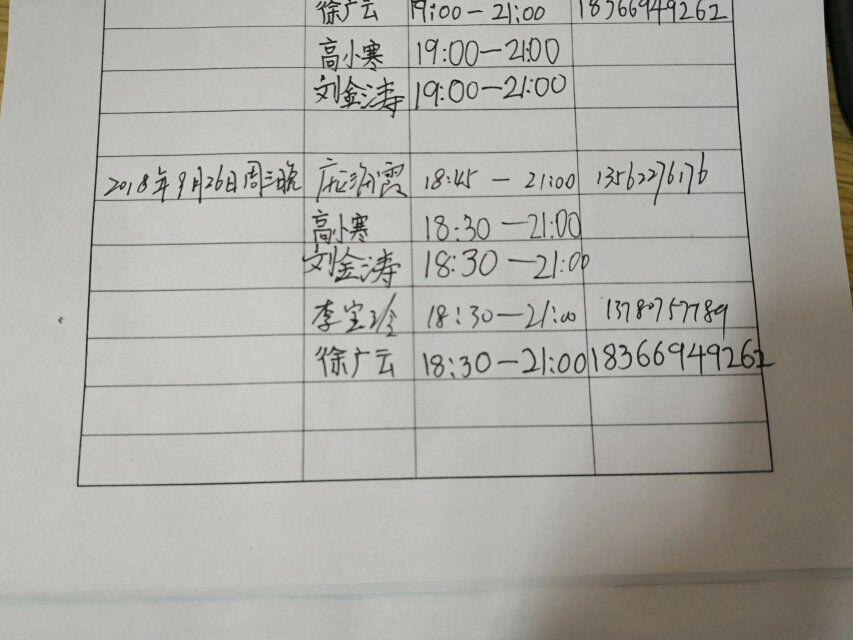 徐广云 19:00-21:00 18366949262
高小寒 19:00-21:00
刘金涛 19:00-21:00
2018年9月26日周三晚 霞 18:45-21:00 13562276176
高小寒 18:30-21:00
刘金涛 18:30-21:00
李宝玲 18:30-21:00 13780757789
徐广云 18:30-21:00 18366949262